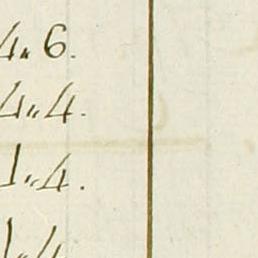 4" 6.
4" 4.
1" 4.
1" 4